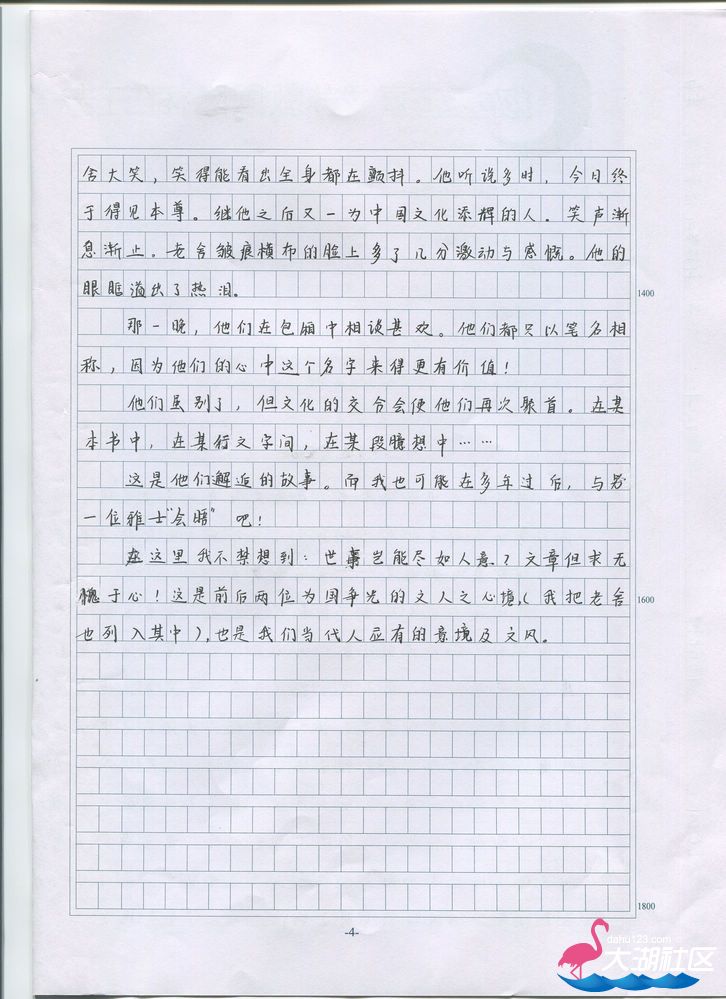 舍大笑，笑得能看出全身都在颤抖。他听说多时，今日终
于得见本尊。继他之后又一为中国文化添辉的人。笑声渐
息渐止。老舍皱痕横布的脸上多了几分激动与感慨。他的
眼眶溢出了热泪。
1400
那一晚，他们在包厢中相谈甚欢。他们都只以笔名相
称，因为他们的心中这个名字来得更有价值！
他们虽别了，但文化的交合会使他们再次聚首。在某
本书中，在某行文字间，在某段臆想中……
这是他们邂逅的故事。而我也可能在多年过后，与另
一位雅士“会晤”吧！
在这里我不禁想到：世事岂能尽如人意？文章但求无
愧于心！这是前后两位为国争光的文人之心境，（我把老舍
1600
也列入其中），也是我们当代人应有的意境及文风。
1800
-4-
dahu123.com
大湖社区